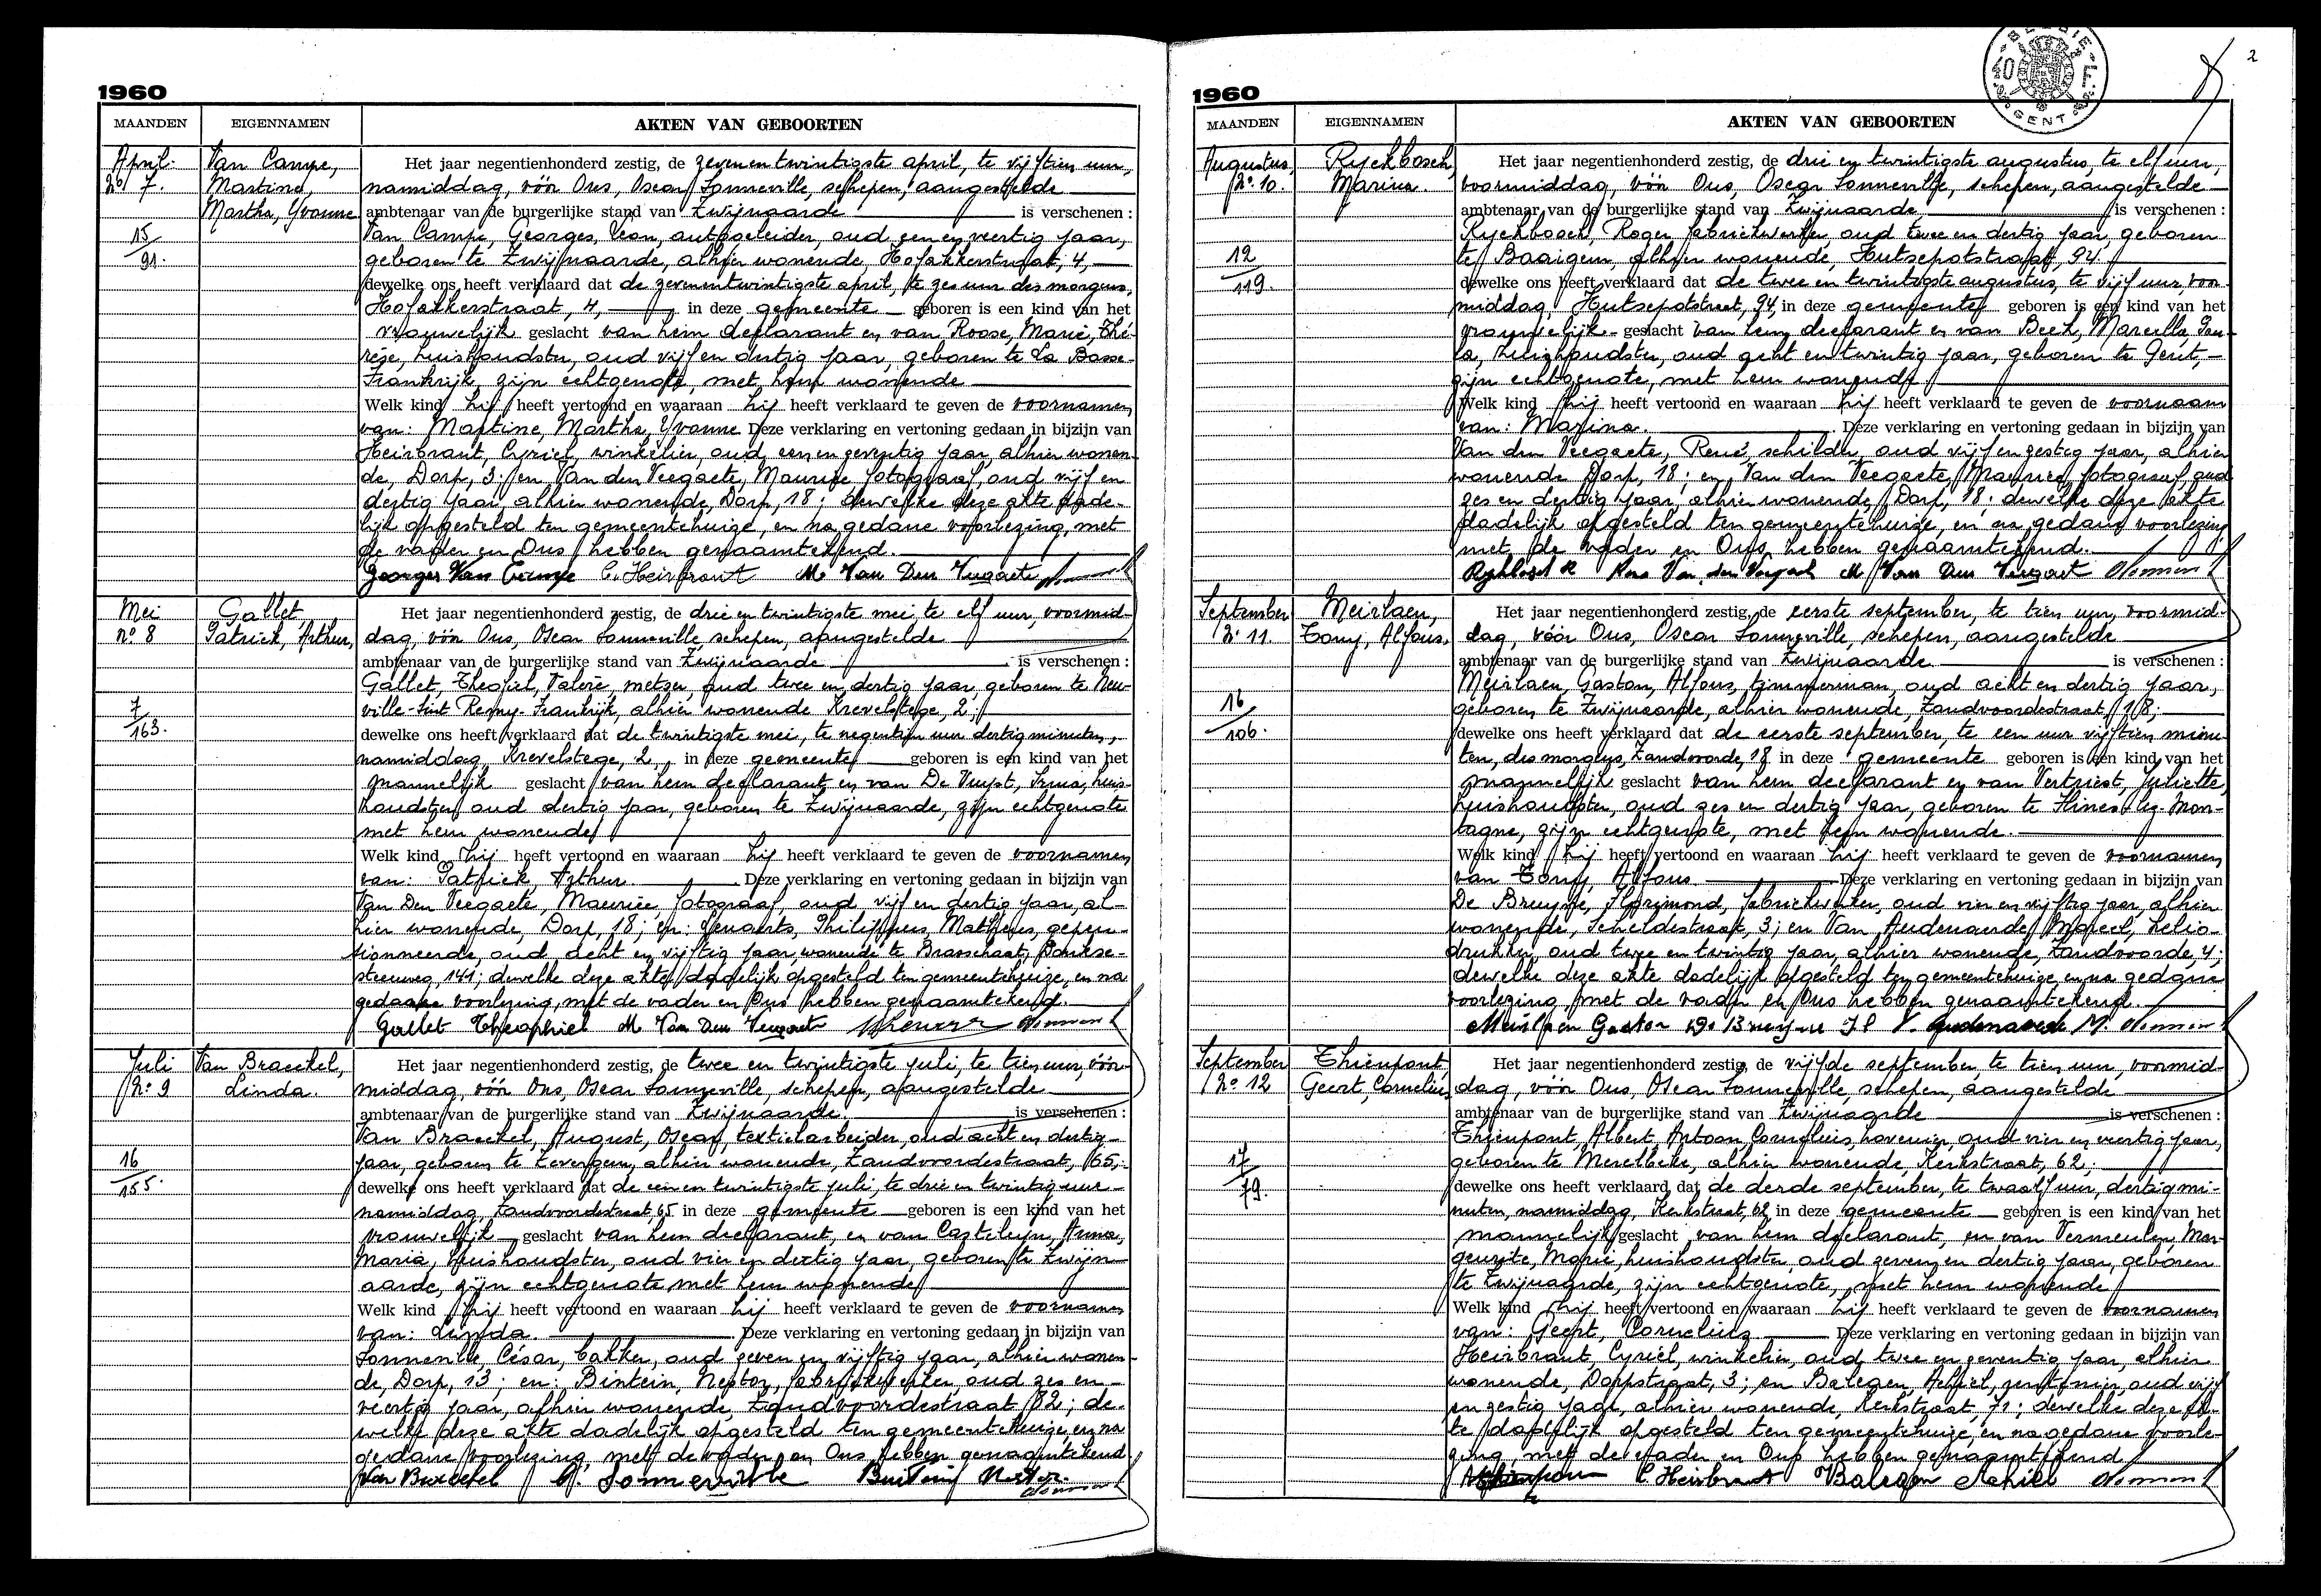 1960
MAANDEN EIGENNAMEN AKTEN VAN GEBOORTEN
April. Van Campe,
no 7. Martine,
Martha, Yvonne
15
91.
Het jaar negentienhonderd zestig, de zevenentwintigste april, te vijftien uur,
namiddag, vóór Ons, Oscar Sonneville, schepen, aangestelde
ambtenaar van de burgerlijke stand van Zwijnaarde is verschenen :
Van Campe, Georges, Leon, autogeleider, oud een en veertig jaar,
geboren te Zwijnaarde, alhier wonende, Hofakkerstraat, 4,
dewelke ons heeft verklaard dat de zevenentwintigste april, te zes uur des morgens,
Hofakkerstraat, 4, in deze gemeente geboren is een kind van het
vrouwelijk geslacht van hem declarant en van Roose, Marie, Thé-
rèse, huishoudster, oud vijf en dertig jaar, geboren te La Basse-
Frankrijk, zijn echtgenote, met hem wonende
Welk kind hij heeft vertoond en waaraan hij heeft verklaard te geven de voornamen
van: Martine, Martha, Yvonne Deze verklaring en vertoning gedaan in bijzijn van
Heirbrant, Cyriel, winkelier, oud een en zeventig jaar, alhier wonen-
de, Dorp, 3; en Van den Veegaete, Maurice fotograaf, oud vijf en
dertig jaar, alhier wonende, Dorp, 18; dewelke deze akte dade-
lijk opgesteld ten gemeentehuize, en na gedane voorlezing, met
de vader en Ons hebben genaamtekend.
Georges Van Campe C. Heirbrant M. Van Den Veegaete
Mei Gallet,
no 8 Patrick, Arthur,
7
163.
Het jaar negentienhonderd zestig, de drie en twintigste mei, te elf uur, voormid-
dag, vóór Ons, Oscar Sonneville, schepen, aangestelde
ambtenaar van de burgerlijke stand van Zwijnaarde is verschenen :
Gallet, Theofiel, Valeré, metser, oud twee en dertig jaar, geboren te Neu-
ville-Sint Remy-Frankrijk, alhier wonende Krevelstege, 2;
dewelke ons heeft verklaard dat de twintigste mei, te negentien uur dertig minuten,
namiddag, Krevelstege, 2, in deze gemeente geboren is een kind van het
mannelijk geslacht van hem declarant en van De Vuyst, Irma, huis-
houdster, oud dertig jaar, geboren te Zwijnaarde, zijn echtgenote
met hem wonende
Welk kind hij heeft vertoond en waaraan hij heeft verklaard te geven de voornamen
van: Patrick, Arthur Deze verklaring en vertoning gedaan in bijzijn van
Van Den Veegaete, Maurice, fotograaf, oud vijf en dertig jaar, al-
hier wonende, Dorp, 18; en: Philippus, Mattheus, gepen-
sionneerde, oud acht en vijftig jaar, wonende te Brasschaat,
steenweg, 141; dewelke deze akte dadelijk opgesteld ten gemeentehuize, en na
gedane voorlezing, met de vader en Ons hebben genaamtekend.
Gallet Theophiel M. Van Den Veegaete
Juli Van Braeckel,
No 9 Linda.
16
155.
Het jaar negentienhonderd zestig, de twee en twintigste juli, te tien uur, vóór-
middag, vóór Ons, Oscar Sonneville, schepen, aangestelde
ambtenaar van de burgerlijke stand van Zwijnaarde. is verschenen :
Van Braeckel, August, Oscar, textielarbeider, oud acht en dertig
jaar, geboren te Zevergem, alhier wonende, Zandvoordestraat, 65;
dewelke ons heeft verklaard dat de een en twintigste juli, te drie en twintig uur
namiddag, Zandvoordestraat 65 in deze gemeente geboren is een kind van het
vrouwelijk geslacht van hem declarant, en van Casteleyn, Anna,
Maria, huishoudster, oud vier en dertig jaar, geboren te Zwijn-
aarde, zijn echtgenote, met hem wonende
Welk kind hij heeft vertoond en waaraan hij heeft verklaard te geven de voornamen
van: Linda. Deze verklaring en vertoning gedaan in bijzijn van
Sonneville, César, bakker, oud zeven en vijftig jaar, alhier wonen-
de, Dorp, 13; en: Bintein, Nestor, fabriekwerker, oud zes en
veertig jaar, alhier wonende, Zandvoordestraat 82; de-
welke deze akte dadelijk opgesteld ten gemeentehuize, en na
gedane voorlezing, met de vader en Ons hebben genaamtekend.
Van Braeckel Sonneville Bintein Nestor.
2
BELGIE
40 F.
GENT
1960
MAANDEN EIGENNAMEN AKTEN VAN GEBOORTEN
Augustus, Ryckbosch,
No. 10. Marina.
12
119.
Het jaar negentienhonderd zestig, de drie en twintigste augustus, te elf uur,
voormiddag, vóór Ons, Oscar Sonneville, schepen, aangestelde
ambtenaar van de burgerlijke stand van Zwijnaarde, is verschenen :
Ryckbosch, Roger fabriekwerker oud twee en dertig jaar, geboren
te Baaigem, alhier wonende, Hutsepotstraat, 94.
dewelke ons heeft verklaard dat de twee en twintigste augustus, te vijf uur, voor-
middag, Hutsepotstraat, 94, in deze gemeente geboren is een kind van het
vrouwelijk geslacht van hem declarant en van Beck, Marcella,
huishoudster, oud acht en twintig jaar, geboren te Gent,
zijn echtgenote, met hem wonende
Welk kind hij heeft vertoond en waaraan hij heeft verklaard te geven de voornaam
van: Marina. Deze verklaring en vertoning gedaan in bijzijn van
Van den Veegaete, René, schilder, oud vijf en zestig jaar, alhier
wonende Dorp, 18; en Van den Veegaete, Maurice, fotograaf, oud
zes en dertig jaar, alhier wonende, Dorp, 18; dewelke deze akte
dadelijk opgesteld ten gemeentehuize, en na gedane voorlezing,
met de vader en Ons, hebben genaamtekend.
Ryckbosch R Van den Veegaete M. Van Den Veegaete
September Meirlaen,
No 11. Tony, Alfons.
16
106.
Het jaar negentienhonderd zestig, de eerste september, te tien uur, voormid-
dag, vóór Ons, Oscar Sonneville, schepen, aangestelde
ambtenaar van de burgerlijke stand van Zwijnaarde is verschenen :
Meirlaen, Gaston, Alfons, timmerman, oud acht en dertig jaar,
geboren te Zwijnaarde, alhier wonende, Zandvoordestraat, 18;
dewelke ons heeft verklaard dat de eerste september, te een uur vijftien minu-
ten, des morgens, Zandvoorde, 18 in deze gemeente geboren is een kind van het
mannelijk geslacht van hem declarant en van Vertriest, Juliette,
huishoudster, oud zes en dertig jaar, geboren te Flines-lez-Mor-
tagne, zijn echtgenote, met hem wonende.
Welk kind hij heeft vertoond en waaraan hij heeft verklaard te geven de voornamen
van Tony, Alfons Deze verklaring en vertoning gedaan in bijzijn van
De Bruyne, Florimond, fabriekwerker, oud vier en vijftig jaar, alhier
wonende, Scheldestraat, 3; en Van Audenaerde, Marcel, helio-
drukker, oud twee en twintig jaar, alhier wonende, Zandvoorde, 4;
dewelke deze akte dadelijk opgesteld ten gemeentehuize, en na gedane
voorlezing, met de vader en Ons hebben genaamtekend.
Meirlaen Gaston De Bruyne Fl V. Audenaerde M.
September Thienpont
No 12 Geert, Cornelius,
17
79.
Het jaar negentienhonderd zestig, de vijfde september, te tien uur, voormid-
dag, vóór Ons, Oscar Sonneville, schepen, aangestelde
ambtenaar van de burgerlijke stand van Zwijnaarde is verschenen :
Thienpont, Albert, Antoon, Cornelius, hovenier, oud vier en veertig jaar,
geboren te Merelbeke, alhier wonende, Kerkstraat, 62;
dewelke ons heeft verklaard dat de derde september, te twaalf uur, dertig mi-
nuten, namiddag, Kerkstraat, 62, in deze gemeente geboren is een kind van het
mannelijk geslacht van hem declarant, en van Vermeulen, Mar-
geurite, Marie, huishoudster, oud zeven en dertig jaar, geboren
te Zwijnaarde, zijn echtgenote, met hem wonende
Welk kind hij heeft vertoond en waaraan hij heeft verklaard te geven de voornamen
van: Geert, Cornelius Deze verklaring en vertoning gedaan in bijzijn van
Heirbrant, Cyriel, winkelier, oud twee en zeventig jaar, alhier
wonende, Dorpstraat, 3; en Balegen, Achiel, rentenier, oud vijf
en zestig jaar, alhier wonende, Kerkstraat, 71; dewelke deze ak-
te dadelijk opgesteld ten gemeentehuize, en na gedane voorle-
zing, met de vader en Ons hebben genaamtekend
C Heirbrant Balegen Achiel